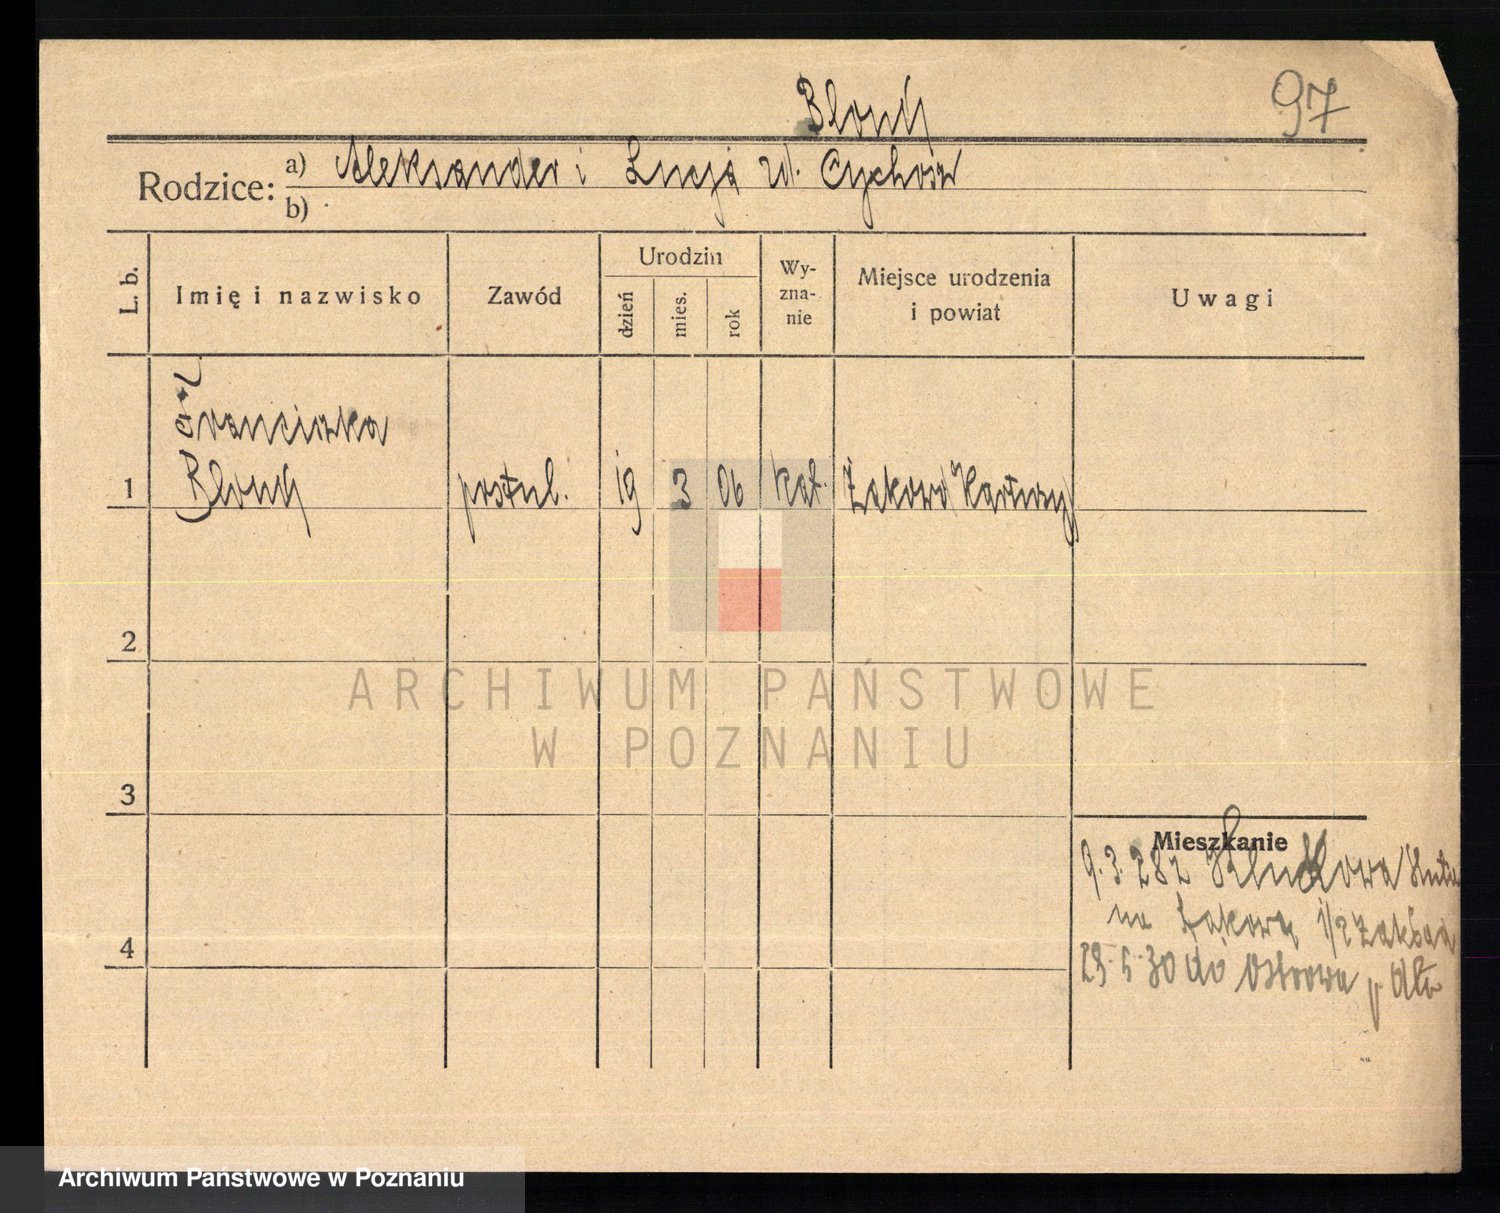 97
Blonk
Rodzice: a) Aleksander i Lucja
b)
L. b.
Imię i nazwisko
Zawód
Urodzin
dzień
mies.
rok
Wy-
zna-
nie
Miejsce urodzenia
i powiat
Uwagi
Franciszka
1 Blonk postul. 19 3 06 kat. Żakowo Kartuzy
2
3
4
Mieszkanie
9. 3. 28 z
na Łąkową 1/2
29. 5. 30 do Ostrowa p.
ARCHIWUM PAŃSTWOWE
W POZNANIU
Archiwum Państwowe w Poznaniu